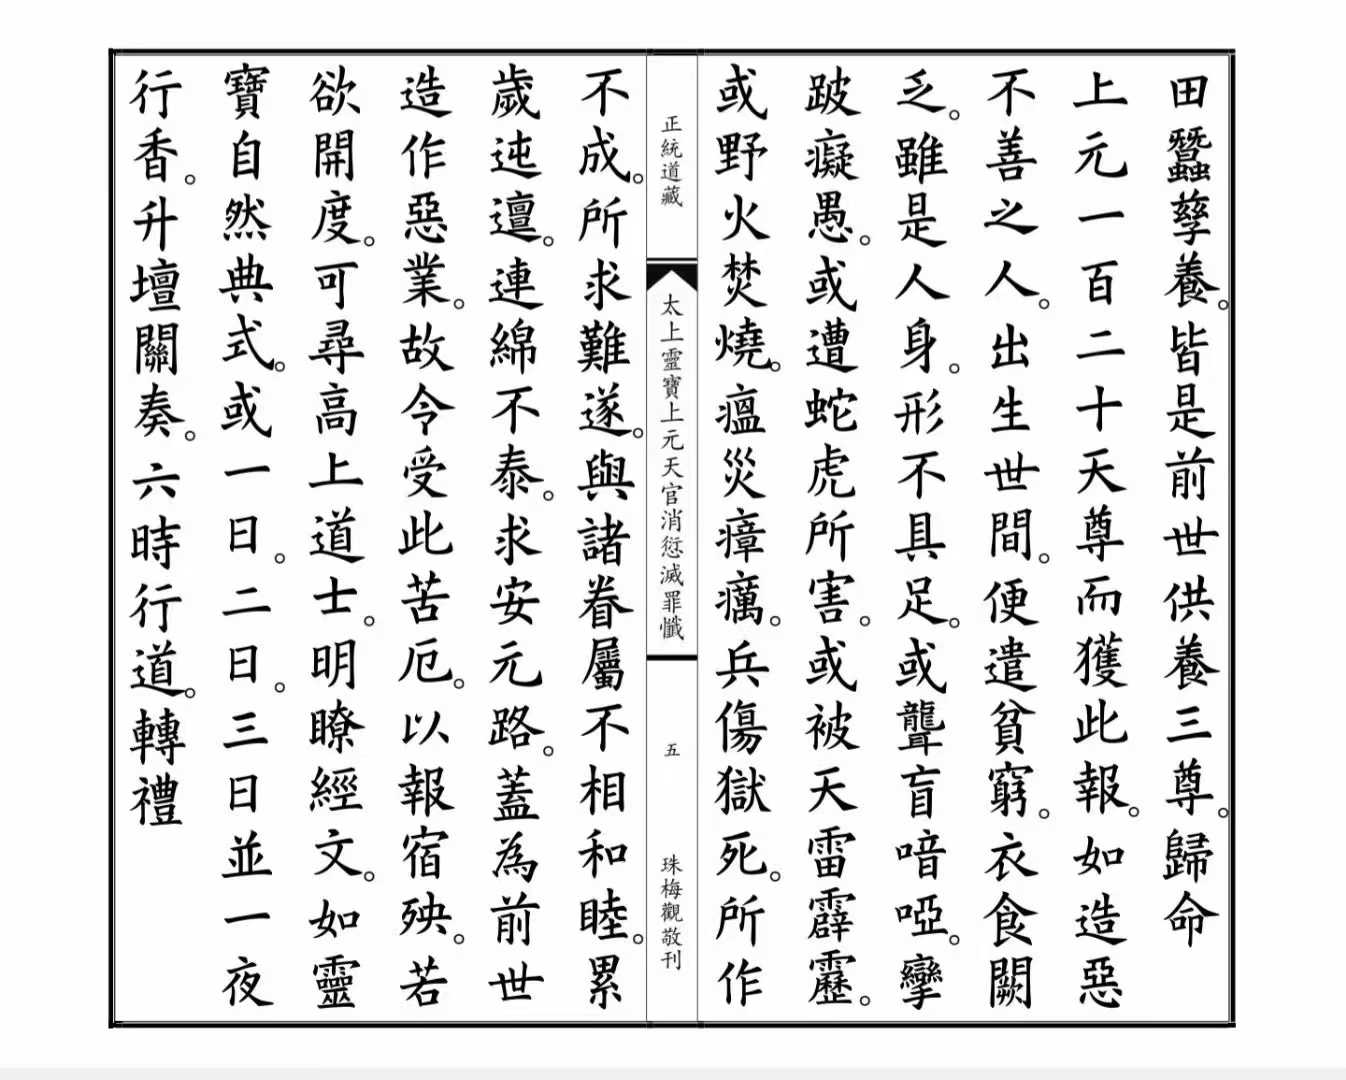 田蠶孳養。皆是前世供養三尊。歸命
上元一百二十天尊而獲此報。如造惡
不善之人。出生世間。便遣貧窮。衣食闕
乏。雖是人身。形不具足。或聾盲喑啞。攣
跛癡愚。或遭蛇虎所害。或被天雷霹靂。
或野火焚燒。瘟災瘴癘。兵傷獄死。所作
正統道藏
太上靈寶上元天官消愆滅罪懺
五
珠梅觀敬刊
不成。所求難遂。與諸眷屬不相和睦。累
歲迍邅。連綿不泰。求安元路。蓋為前世
造作惡業。故令受此苦厄。以報宿殃。若
欲開度。可尋高上道士。明瞭經文。如靈
寶自然典式。或一日。二日。三日並一夜
行香。升壇關奏。六時行道。轉禮